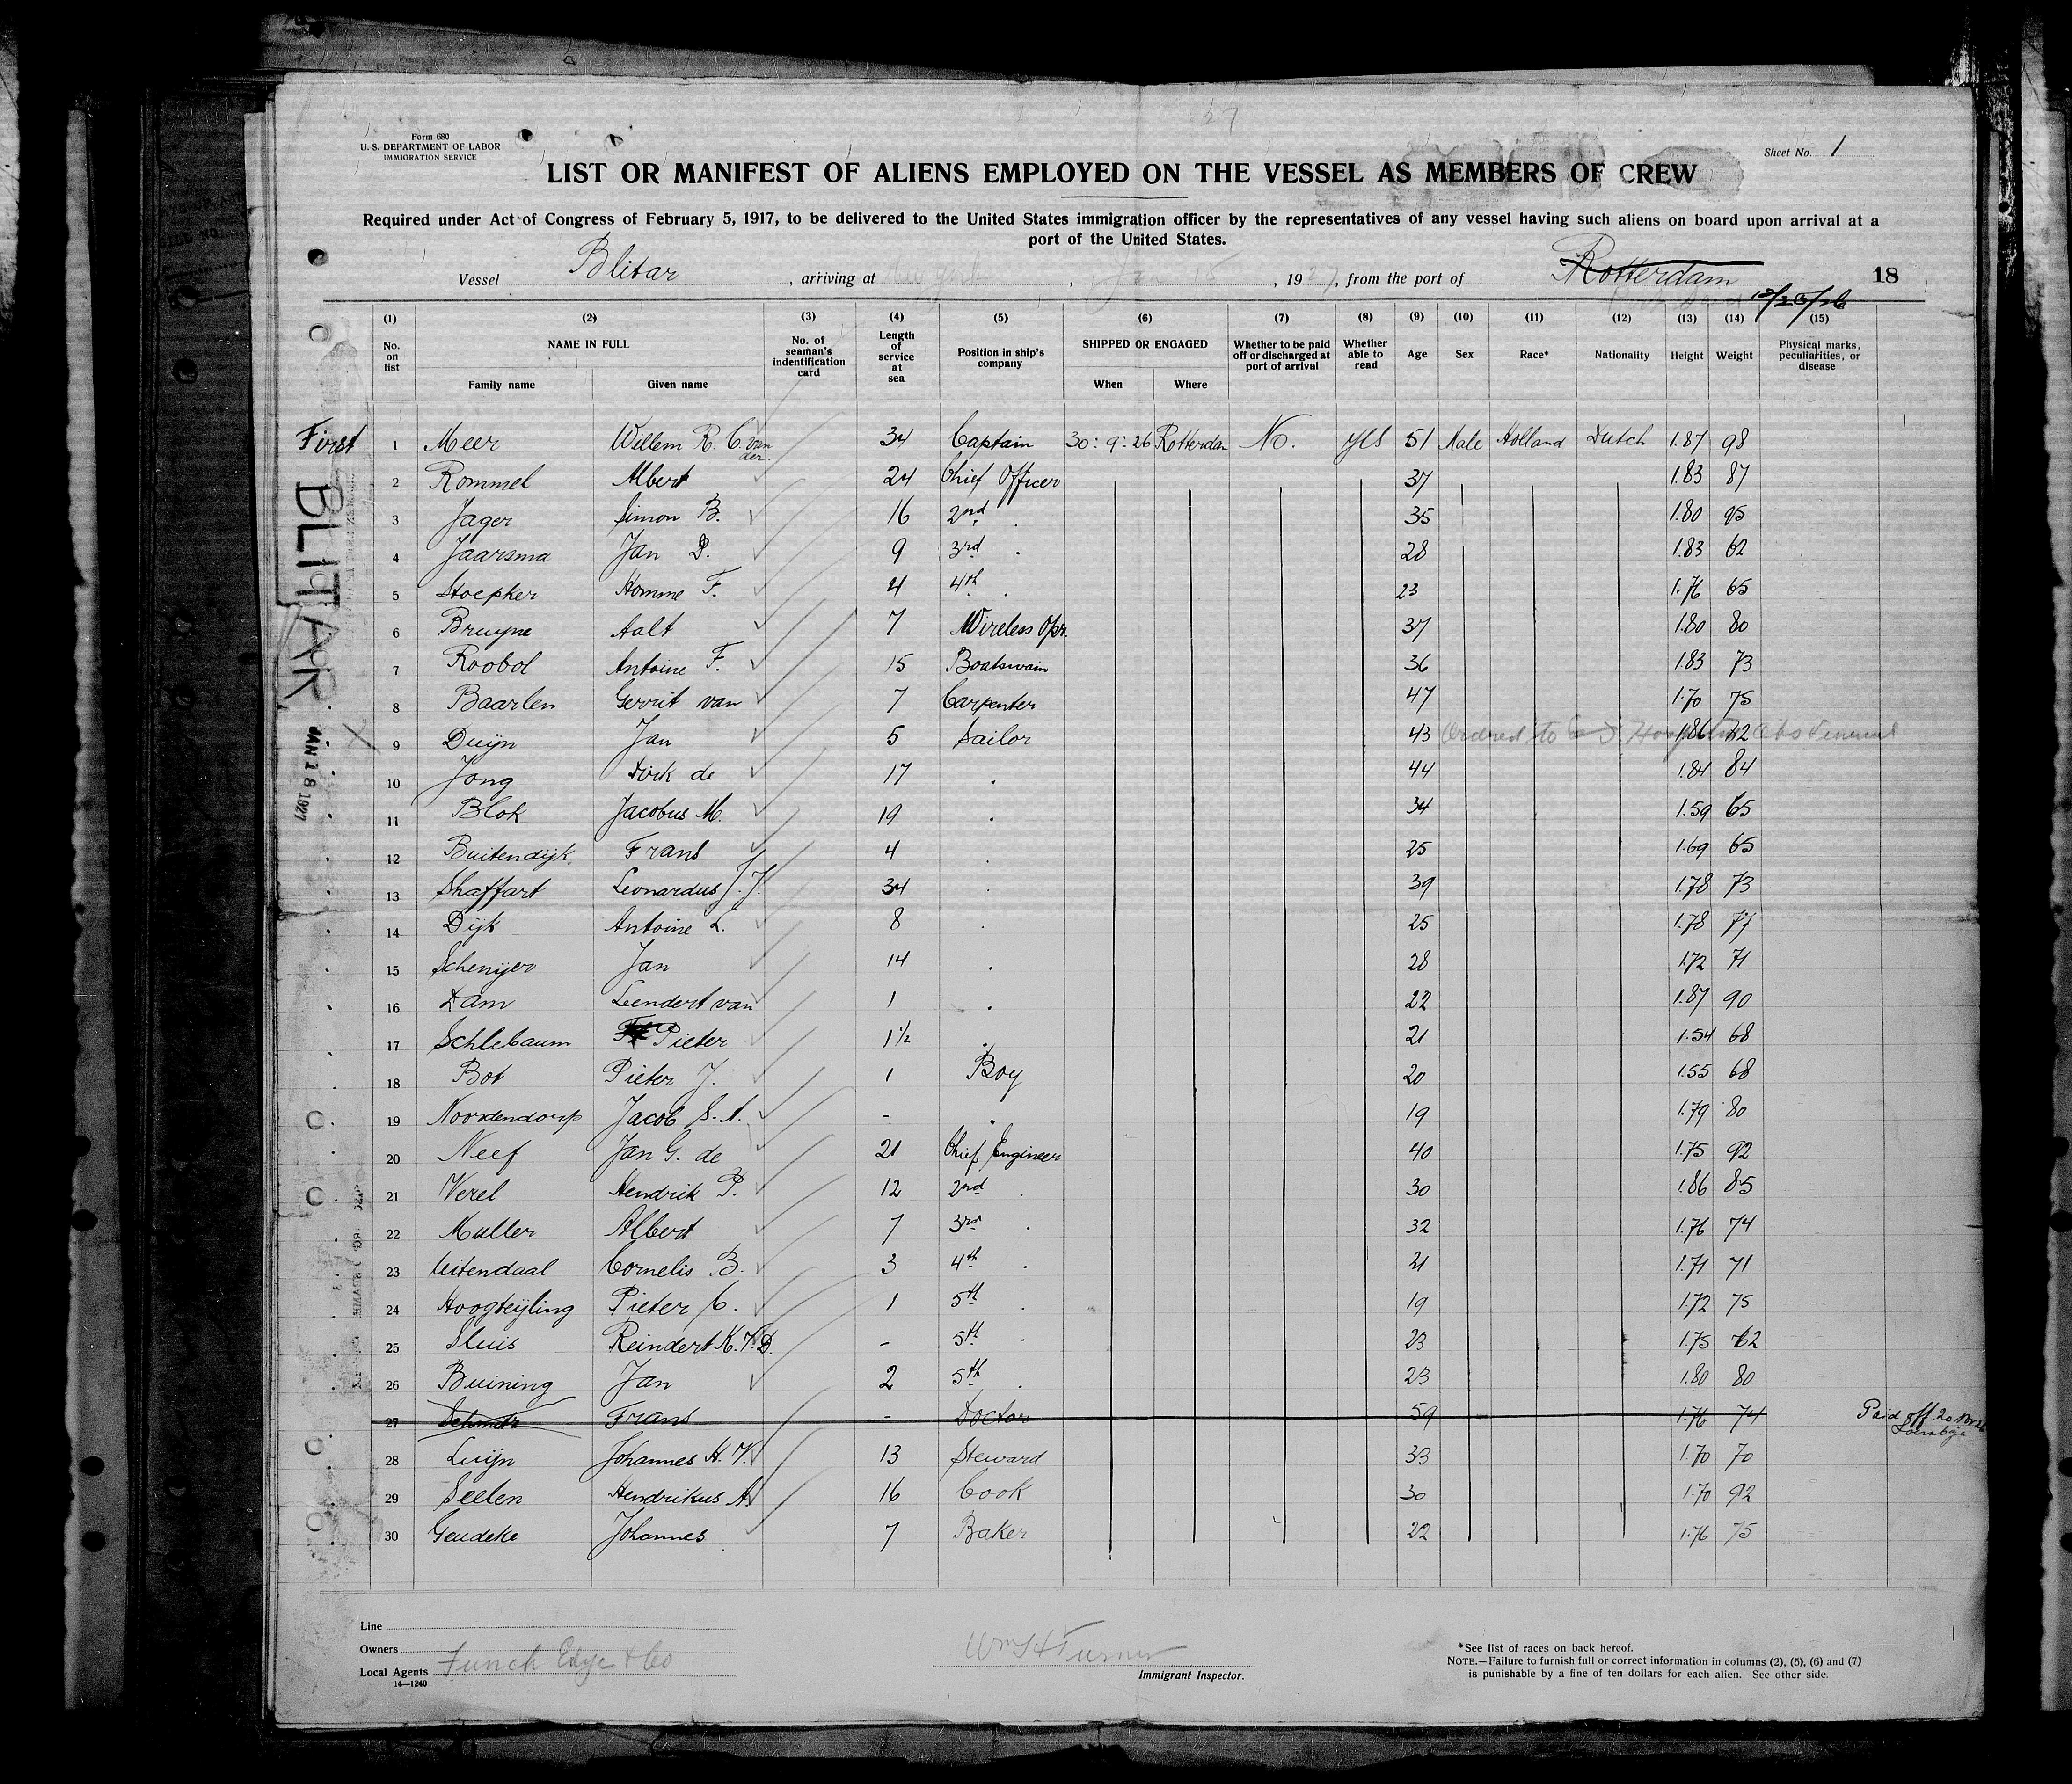 27
Form 680
U. S. DEPARTMENT OF LABOR
IMMIGRATION SERVICE
Sheet No. 1
LIST OR MANIFEST OF ALIENS EMPLOYED ON THE VESSEL AS MEMBERS OF CREW
Required under Act of Congress of February 5, 1917, to be delivered to the United States immigration officer by the representatives of any vessel having such aliens on board upon arrival at a
port of the United States.
Vessel Blitar, arriving at New York, Jan 18, 1927, from the port of Rotterdam 18
(1) (2) (3) (4) (5) (6) (7) (8) (9) (10) (11) (12) (13) (14) (15)
No. on list NAME IN FULL Family name Given name No. of seaman's indentification card Length of service at sea Position in ship's company SHIPPED OR ENGAGED When Where Whether to be paid off or discharged at port of arrival Whether able to read Age Sex Race* Nationality Height Weight Physical marks, peculiarities, or disease
First 1 Meer Willem R. C. van der 34 Captain 30:9:26 Rotterdam No. yes 51 Male Holland Dutch 1.87 98
2 Rommel Albert 24 Chief Officer 37 1.83 87
3 Jager Simon B. 16 2nd . 35 1.80 95
4 Jaarsma Jan D. 9 3rd . 28 1.83 62
5 Stoepker Homme F. 4 4th . 23 1.76 65
6 Bruyne Aalt 7 Wireless Opr. 37 1.80 80
7 Roobol Antoine F. 15 Boatswain 36 1.83 73
8 Baarlen Gerrit van 7 Carpenter 47 1.70 75
9 Duijn Jan 5 Sailor 43 Ordered to 1.86 72
10 Jong Dirk de 17 . 44 1.84 84
11 Blok Jacobus M. 19 . 34 1.59 65
12 Buitendijk Frans 4 . 25 1.69 65
13 Shaffart Leonardus J. J. 34 . 39 1.78 73
14 Dijk Antoine L. 8 . 25 1.78 77
15 Jan 14 . 28 1.72 71
16 Dam Leendert van 1 . 22 1.87 90
17 Schlebaum Pieter 1½ . 21 1.54 68
18 Bot Pieter J. 1 Boy 20 1.55 68
19 Noordendorp Jacob S. A. - . 19 1.79 80
20 Neef Jan G. de 21 Chief Engineer 40 1.75 92
21 Verel Hendrik P. 12 2nd . 30 1.86 85
22 Muller Albert 7 3rd . 32 1.76 74
23 Uitendaal Cornelis B. 3 4th . 21 1.71 71
24 Hoogteijling Pieter C. 1 5th . 19 1.72 75
25 Sluis Reindert K. V. D. - 5th . 23 1.75 62
26 Buining Jan 2 5th . 23 1.80 80
27 Schmitz Frans - Doctor 59 1.76 74 Paid off 20
28 Luijn Johannes H. V. 13 Steward 33 1.70 70
29 Seelen Hendrikus A. 16 Cook 30 1.70 92
30 Geudeke Johannes 7 Baker 22 1.76 75
BLITAR
JAN 18 1927
Line
Owners
Local Agents Funch Edye & Co
14—1240
Wm H Turner
Immigrant Inspector.
*See list of races on back hereof.
NOTE.—Failure to furnish full or correct information in columns (2), (5), (6) and (7)
is punishable by a fine of ten dollars for each alien. See other side.